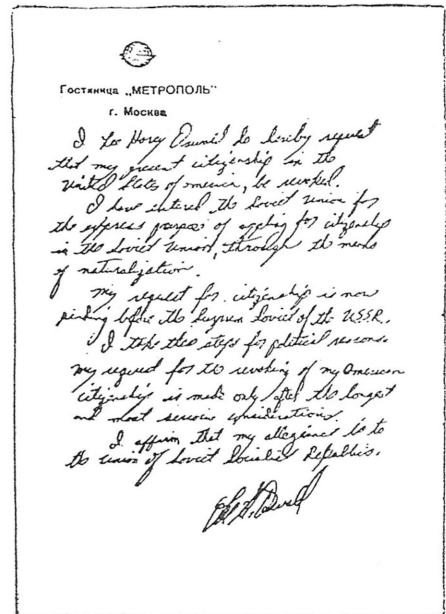 Гостиница „МЕТРОПОЛЬ"
г. Москва
I Lee Harey Oswald do hereby request
that my present citizenship in the
United States of america, be revoked.
I have entered the Soviet Union for
the express purpose of appling for citizenship
in the Soviet Union, through the means
of naturalization.
My request for citizenship is now
pending before the Suprem Soviet of the U.S.S.R.
I take these steps for political reasons.
My request for the revoking of my American
citizenship is made only after the longest
and most serious considerations.
I affirm that my allegiance is to
the Union of Soviet Socialist Republics.